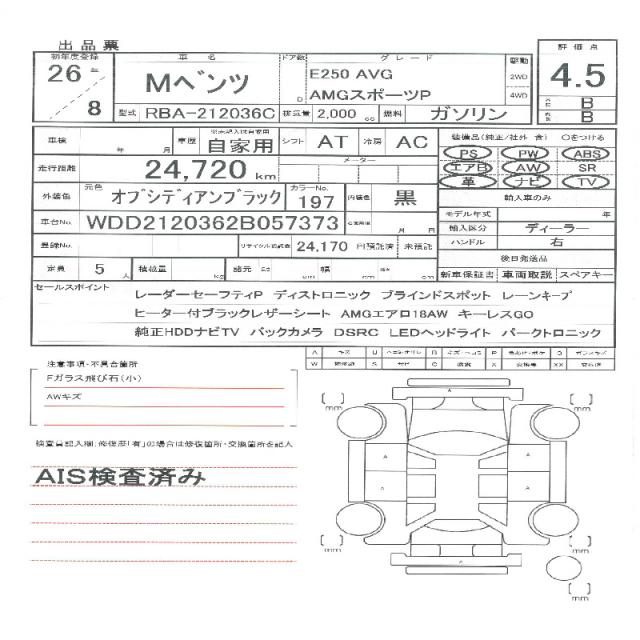 出品票
初年度登録 車名 ドア数 グレード 駆動 評価点
26年 Mベンツ D E250 AVG 2WD 4.5
8 AMGスポーツP 4WD B
型式 RBA-212036C 排気量 2,000 cc 燃料 ガソリン B
車検 年 月 車歴 自家用 シフト AT 冷房 AC 装備品(純正/社外 含) Oをつける
走行距離 24,720 km メーター PS PW ABS
エアB AW SR
革 ナビ TV
外装色 元色 オブシディアンブラック カラーNo. 197 内装色 黒 輸入車のみ
モデル年式 年
車台No. WDD2120362B057373 月 日 輸入区分 ディーラー
登録No. 24,170 円預託済 未預託 ハンドル 右
後日発送品
定員 5人 積載量 kg 諸元 長さ cm 幅 cm cm 新車保証書 車両取説 スペアキー
セールスポイント
レーダーセーフティP ディストロニック ブラインドスポット レーンキープ
ヒーター付ブラックレザーシート AMGエアロ18AW キーレスGO
純正HDDナビTV バックカメラ DSRC LEDヘッドライト パークトロニック
注意事項・不具合箇所
Fガラス飛び石(小)
AWキズ
検査員記入欄:修復歴「有」の場合は修復箇所・交換箇所を記入
AIS検査済み
A U B P G
W S C X XX
mm mm
A A
A A
mm mm
A
mm